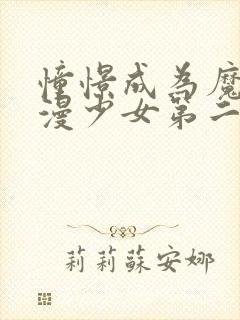 憧憬成為魔
漫少女第二
莉莉蘇安娜